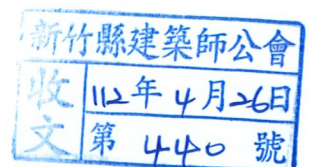 新竹縣建築師公會
收文
112年4月26日
第 440 號